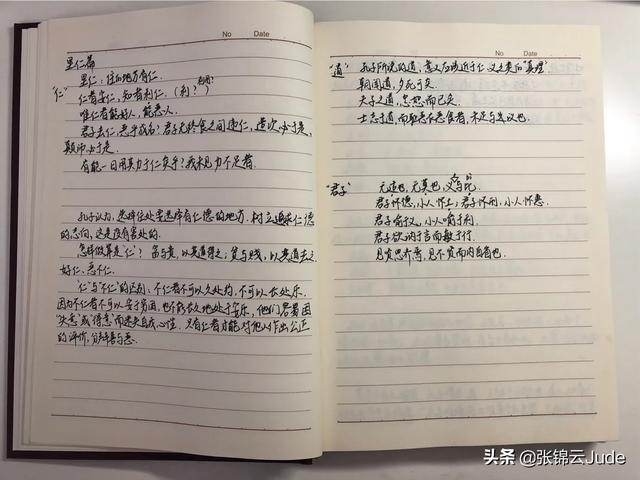 No Date
里仁篇
里仁：住的地方有仁。
"仁" 仁者安仁，知者利仁。（利？）
唯仁者能好人，能恶人。
君子去仁，恶乎成名？君子无终食之间违仁，造次必于是，
颠沛必于是。
有能一日用其力于仁矣乎？我未见力不足者。
孔子认为，选择住处要选择有仁德的地方，树立追求仁德
的志向，这是没有害处的。
怎样做算是"仁"？富与贵，以其道得之；贫与贱，以其道去之
好仁、恶不仁。
"仁"与"不仁"的区别：不仁者不可以久处约，不可以长处乐。
因为不仁者不可以安于穷困，也不能长久地处于安乐，他们容易因
"失意"或"得意"而迷失自我、心性。只有仁者才能对他人作出公正
的评价，分辨善与恶。
No Date
"道" 孔子所说的道，意义应该近于仁、义之类的"真理"
朝闻道，夕死可矣。
夫子之道，忠恕而已矣。
士志于道，而耻恶衣恶食者，未足与议也。
"君子" 无适也，无莫也，义与比。
君子怀德，小人怀土；君子怀刑，小人怀惠。
君子喻于义，小人喻于利。
君子欲讷于言而敏于行。
见贤思齐焉，见不贤而内自省也。
头条 @张锦云Jude